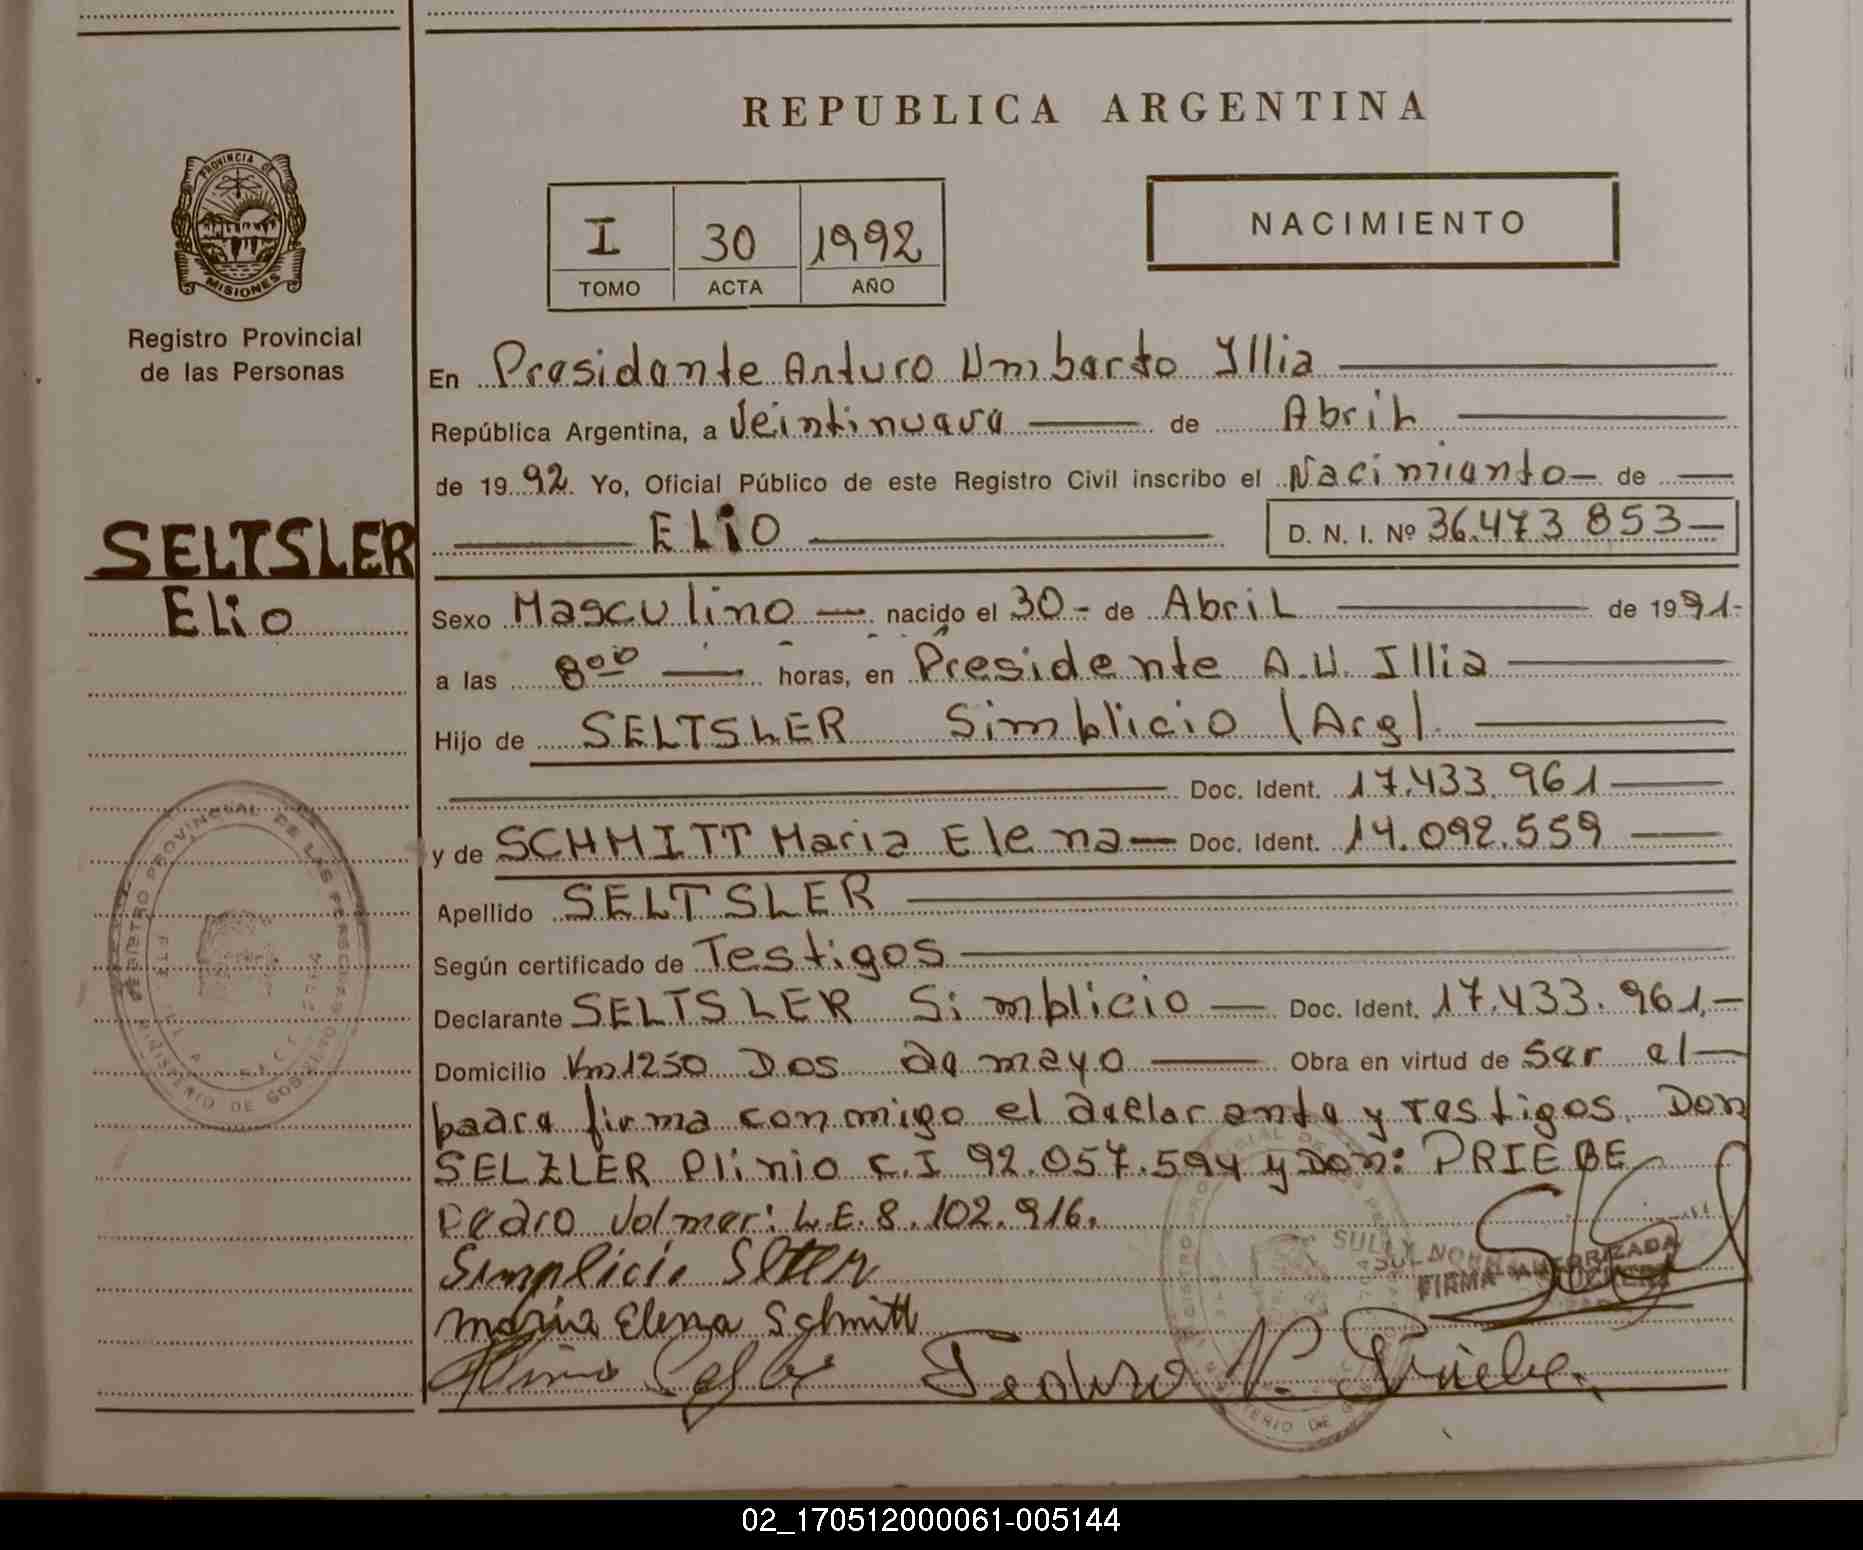 REPUBLICA ARGENTINA
PROVINCIA DE
MISIONES
Registro Provincial
de las Personas
I 30 1992
TOMO ACTA AÑO
NACIMIENTO
En Presidente Arturo Umberto Illia
República Argentina, a Veintinueve de Abril
de 1992. Yo, Oficial Público de este Registro Civil inscribo el Nacimiento de
ELIO D. N. I. Nº 36.473.853
SELTSLER
Elio
Sexo Masculino nacido el 30 de Abril de 1991
a las 8⁰⁰ horas, en Presidente A.U. Illia
Hijo de SELTSLER Simplicio (Arg).
Doc. Ident. 17.433.961
y de SCHMITT Maria Elena Doc. Ident. 14.092.559
Apellido SELTSLER
Según certificado de Testigos
Declarante SELTSLER Simplicio Doc. Ident. 17.433.961,
Domicilio Km 1250 Dos de mayo Obra en virtud de Ser el
padre firma conmigo el declarante y testigos. Don
SELZLER Plinio C.I 92.057.594 y Don: PRIEBE
Pedro Volmer: L.E. 8.102.916.
Simplicio
Maria Elena Schmitt
REGISTRO PROVINCIAL DE LAS PERSONAS
MINISTERIO DE GOBIERNO
FIRMA AUTORIZADA
02_170512000061-005144